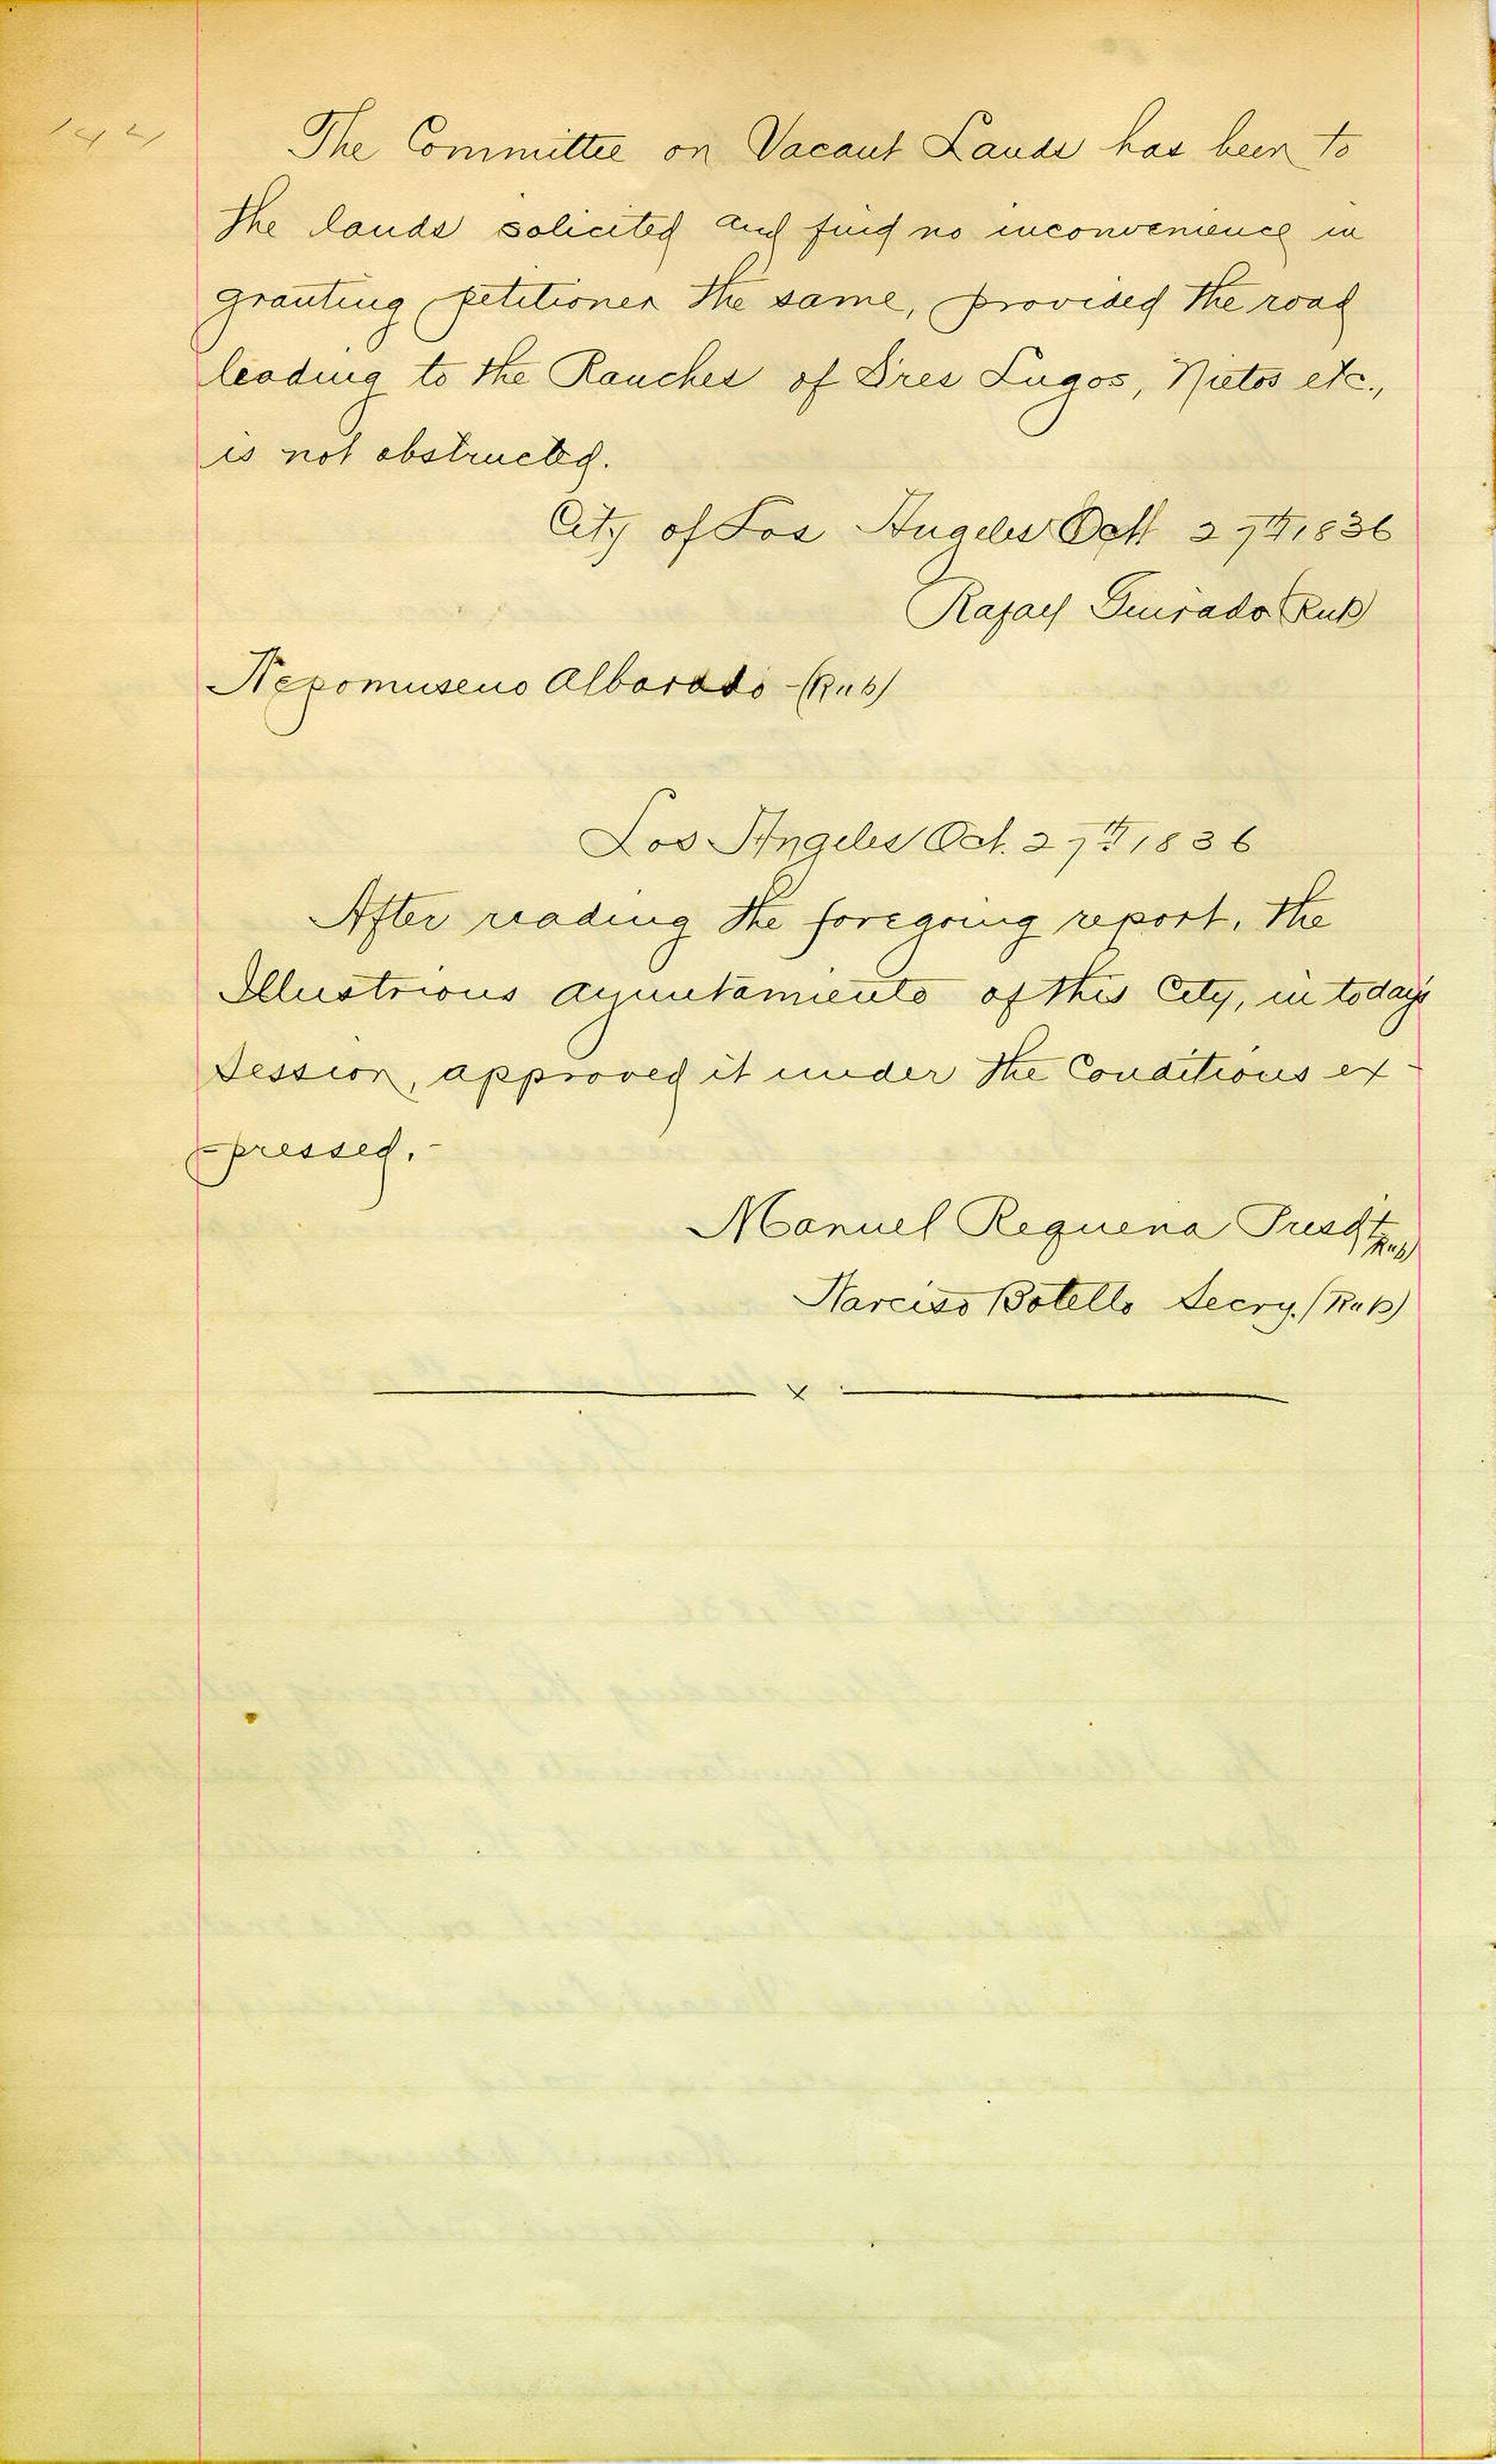 144
The Committee on Vacant Lands has been to
the lands solicited and find no inconvenience in
granting petitioner the same, provided the road
leading to the Ranches of Sres Lugos, Nietos etc.,
is not obstructed.
City of Los Angeles Oct 27th 1836
Rafael Guirado (Rub)
Nepomuseno Albarado - (Rub)
Los Angeles Oct. 27th 1836
After reading the foregoing report, the
Illustrious Ayuntamiento of this City, in today's
Session, approved it under the Conditions ex-
-pressed. -
Manuel Requena Presdt (Rub)
Narciso Botello Secry. (Rub)
x